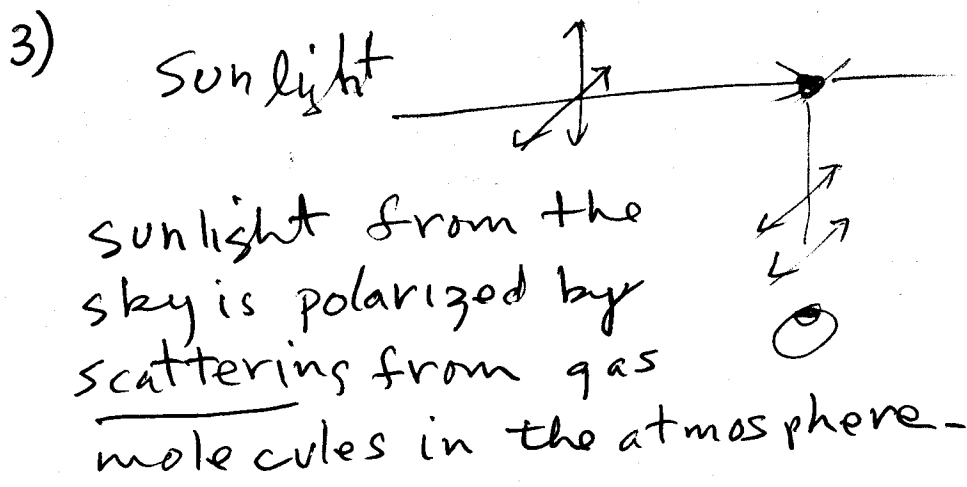 3)
Sunlight
sunlight from the
sky is polarized by
scattering from gas
molecules in the atmosphere.